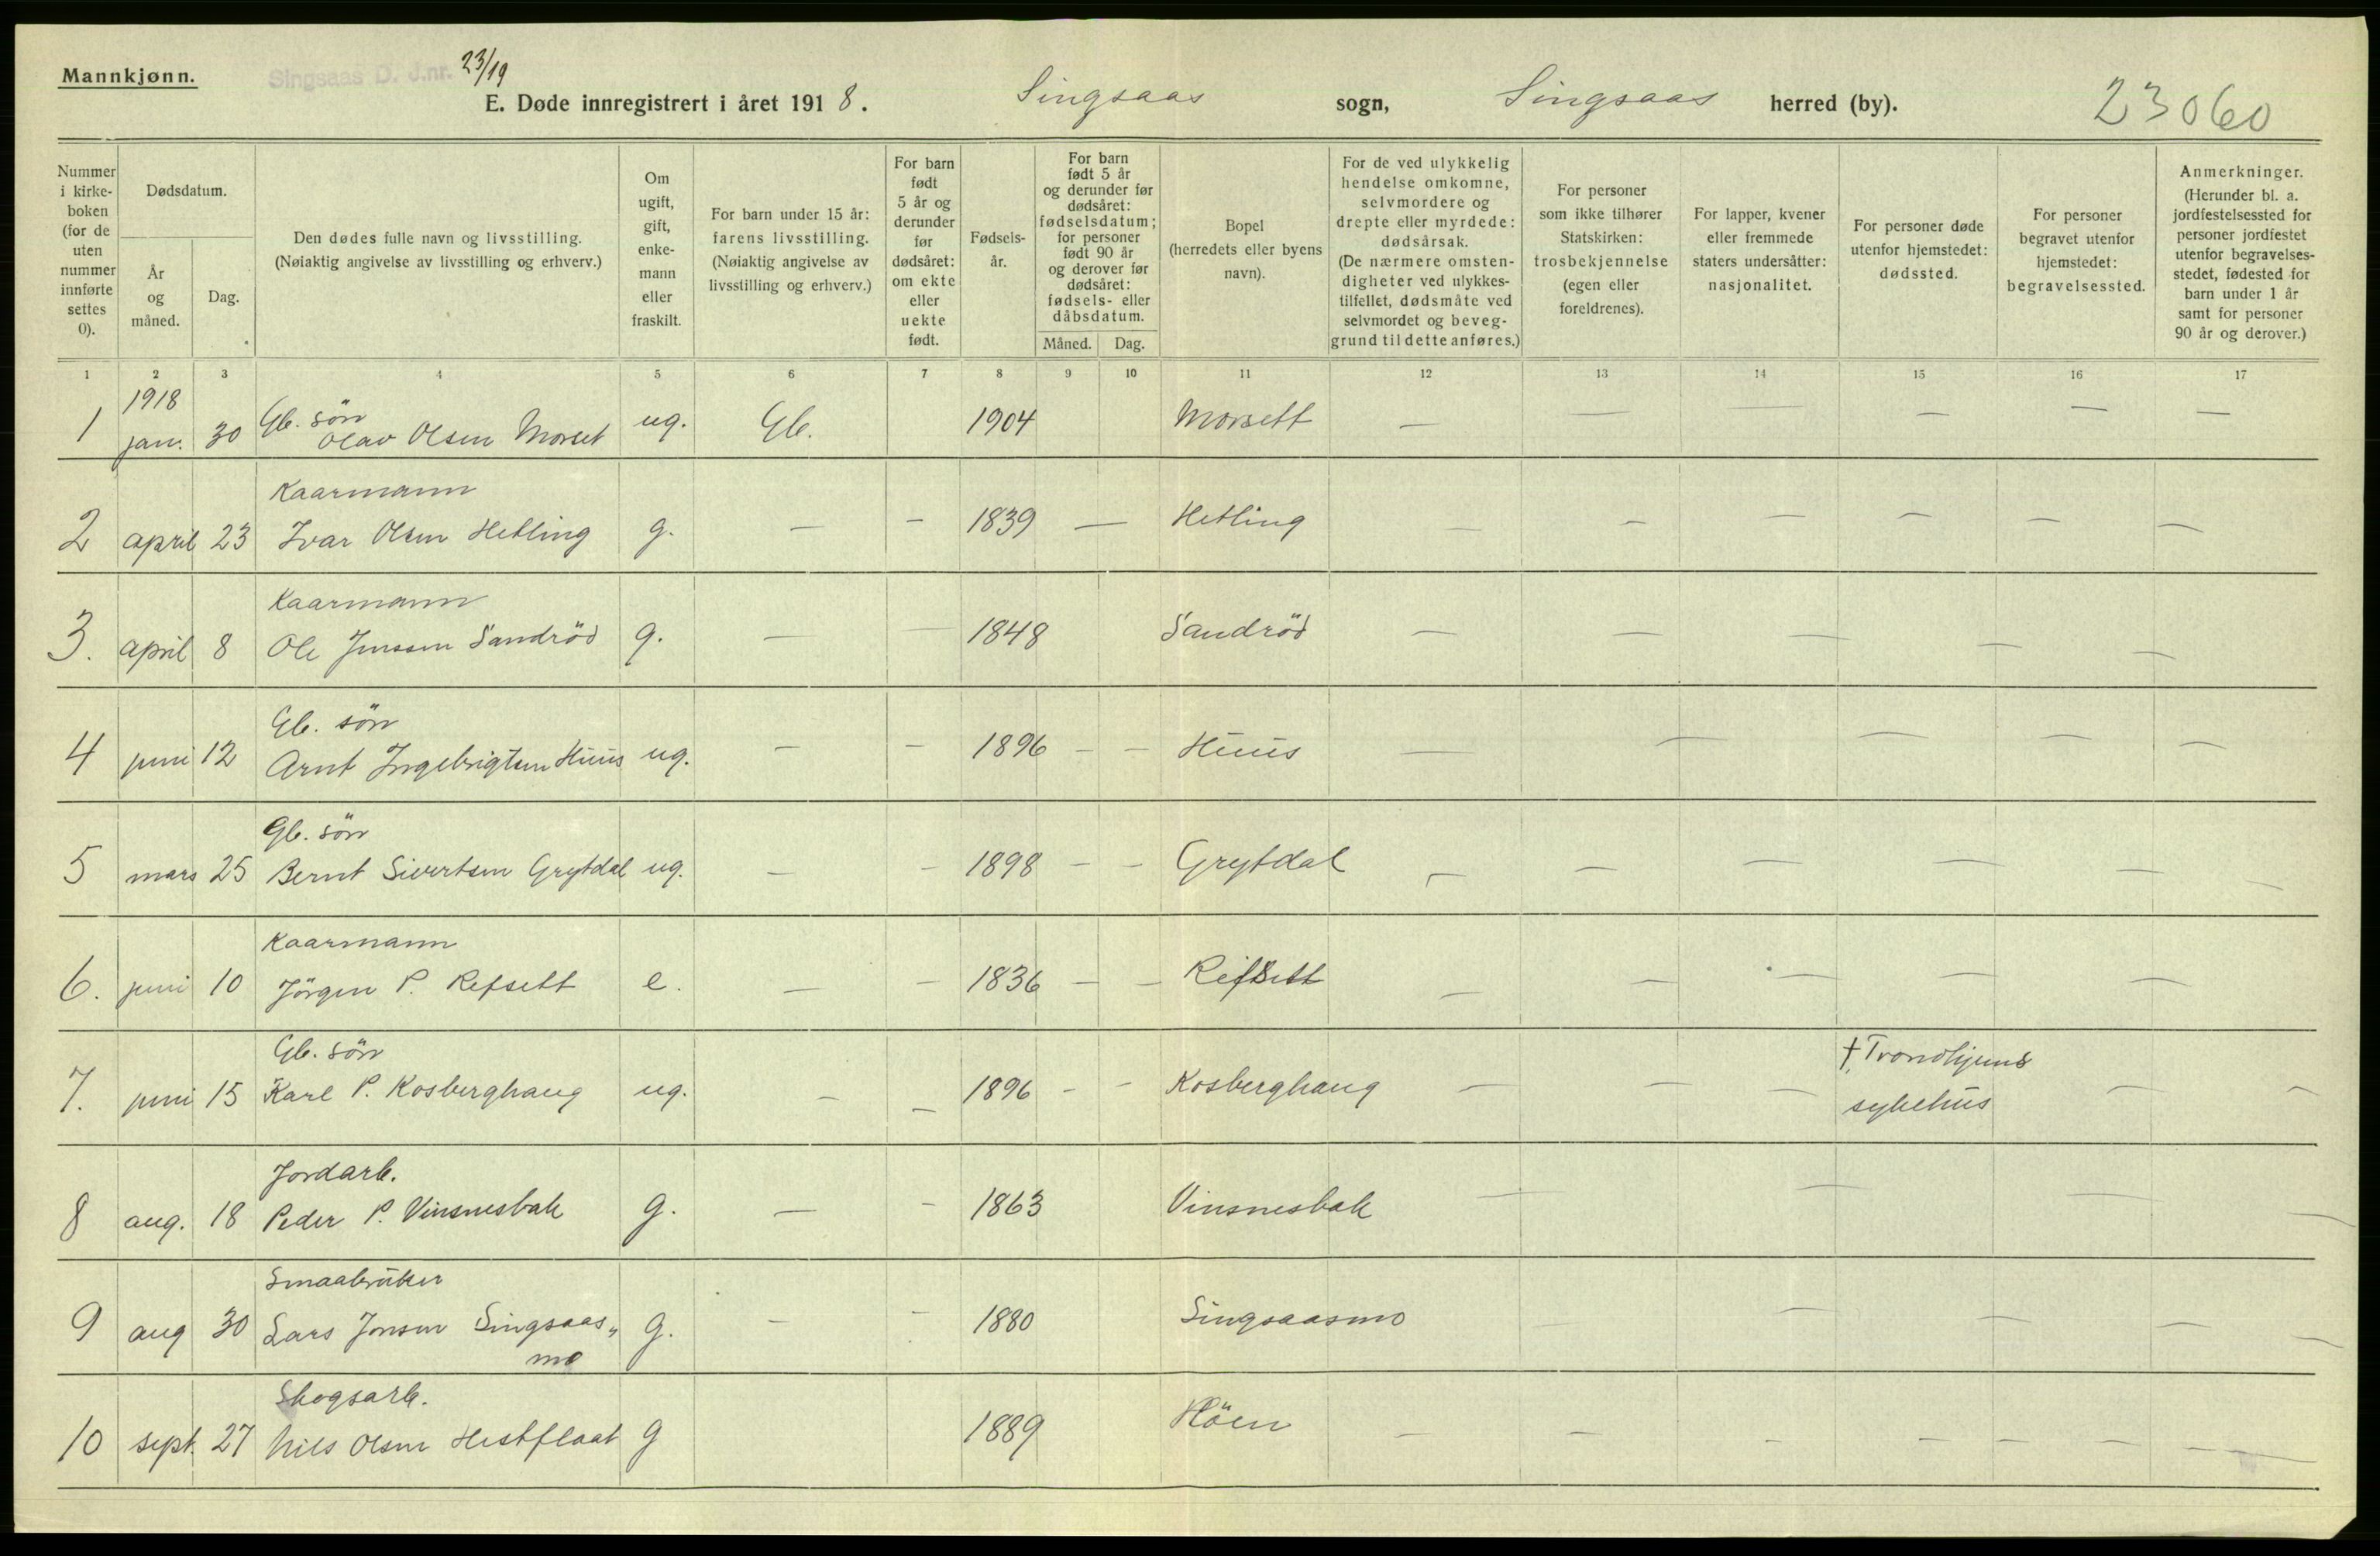 Mannkjønn.
Singsaas D. J.nr. 23/19
E. Døde innregistrert i året 1918. Singsaas sogn, Singsaas herred (by). 23060
Nummer i kirke- boken (for de uten nummer innførte settes 0).
Dødsdatum.
År og måned.
Dag.
Den dødes fulle navn og livsstilling.
(Nøiaktig angivelse av livsstilling og erhverv.)
Om ugift, gift, enke- mann eller fraskilt.
For barn under 15 år: farens livsstilling. (Nøiaktig angivelse av livsstilling og erhverv.)
For barn født 5 år og derunder før dødsåret: om ekte eller uekte født.
Fødsels- år.
For barn født 5 år og derunder før dødsåret: fødselsdatum; for personer født 90 år og derover før dødsåret: fødsels- eller dåbsdatum.
Måned. Dag.
Bopel (herredets eller byens navn).
For de ved ulykkelig hendelse omkomne, selvmordere og drepte eller myrdede: dødsårsak. (De nærmere omsten- digheter ved ulykkes- tilfellet, dødsmåte ved selvmordet og beveg- grund til dette anføres.)
For personer som ikke tilhører Statskirken: trosbekjennelse (egen eller foreldrenes).
For lapper, kvener eller fremmede staters undersåtter: nasjonalitet.
For personer døde utenfor hjemstedet: dødssted.
For personer begravet utenfor hjemstedet: begravelsessted.
Anmerkninger. (Herunder bl. a. jordfestelsessted for personer jordfestet utenfor begravelses- stedet, fødested for barn under 1 år samt for personer 90 år og derover.)
1 2 3 4 5 6 7 8 9 10 11 12 13 14 15 16 17
1918
Gb. sön
1 jan. 30 Olav Olsen Morset ug. Gb. 1904 Morsett — — — — — —
Kaarmann
2 april 23 Ivar Olsen Hetling g. — — 1839 — Hetling — — — — — —
Kaarmann
3. april 8 Ole Jenssen Sandröd g. — — 1848 Sandröd — — — — —
Gb. sön
4 juni 12 Arnt Ingebrigtsen Huus ug. — — 1896 — — Huus — — — — —
Gb. sön
5 mars 25 Bernt Sivertsen Grytdal ug. — — 1898 — — Grytdal — — — — — —
Kaarmann
6. juni 10 Jörgen P. Refsett e. — — 1836 — — Refsett — — — — —
Gb. sön
7. juni 15 Karl P. Kosberghaug ug. — — 1896 — — Kosberghaug — — — † Trondhjems sykehus — —
Jordarb.
8 aug. 18 Peder P. Vinsnesbak g. — — 1863 Vinsnesbak — — — —
Smaabruker
9 aug 30 Lars Jonsen Singsaas„ g. — — 1880 Singsaasmo — — — — —
mo
Skogsarb.
10 sept. 27 Nils Olsen Hestflaat g 1889 Höen — — — — — — — —